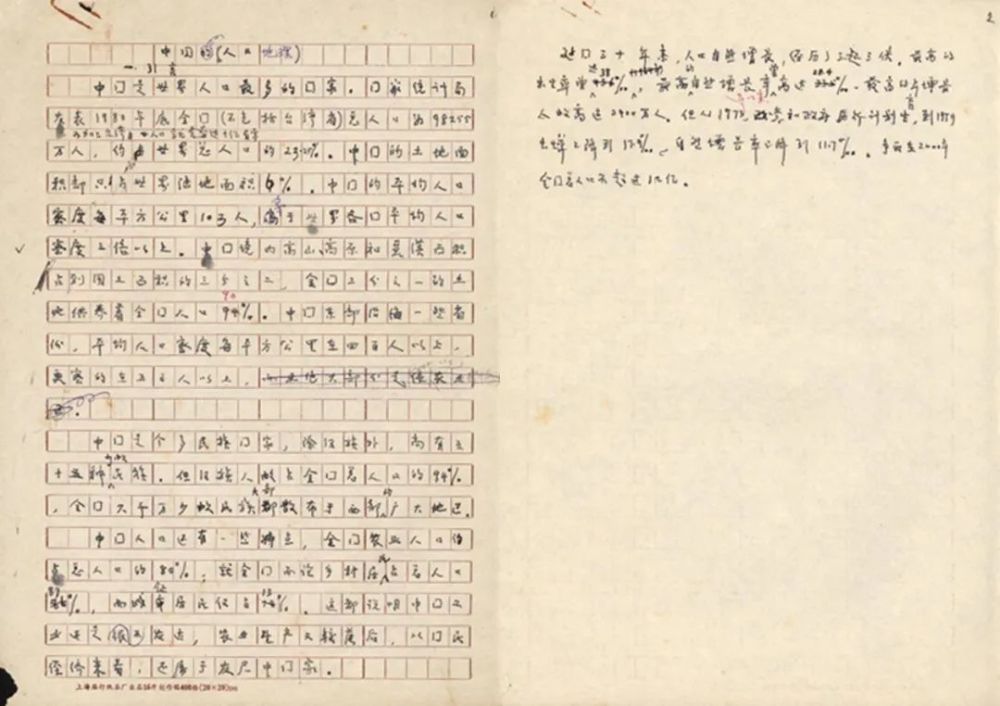 中国的(人口地理)
中国是世界人口最多的国家。国家统计局
发表1980年底全国(不包括台湾省)总人口为98255
万人，约占世界总人口的23%。中国的土地面
积却只占世界陆地面积6%。中国的平均人口
密度每平方公里103人，高于世界各国平均人口
密度三倍以上。中国境内高山、高原和荒漠面积
占到国土面积的三分之二，全国三分之一的土
地供养着全国人口90%。中国东部沿海一些省
份，平均人口密度每平方公里在四百人以上，
更密的在五百人以上，
中国是个多民族国家，除汉族外，尚有五
十五种民族。但汉族人数占全国总人口的94%
，全国六千万少数民族大部散布于西部的广大地区。
中国人口还有一些特点，全国农业人口约
占总人口的84%，就全国而论乡村居民占总人口
%，而城镇居民仅占13%。这都说明中国工
业还是很不发达，农业生产又较落后，以国民
经济来看，还属于发展中国家。
上海市印纸品厂出品16开创作稿400格(20×20)
2
建国三十年来，人口自然增长，经历了三起三伏，最高的
出生率达38%。，最高的自然增长率曾高达%。最高的年增长
人数高达2900万人，但从1973 政党和政府厉行计划生育，到1979
出生率下降到17.9%。，自然增长率下降到11.7%。，争取在2000年
全国总人口不超过12亿。